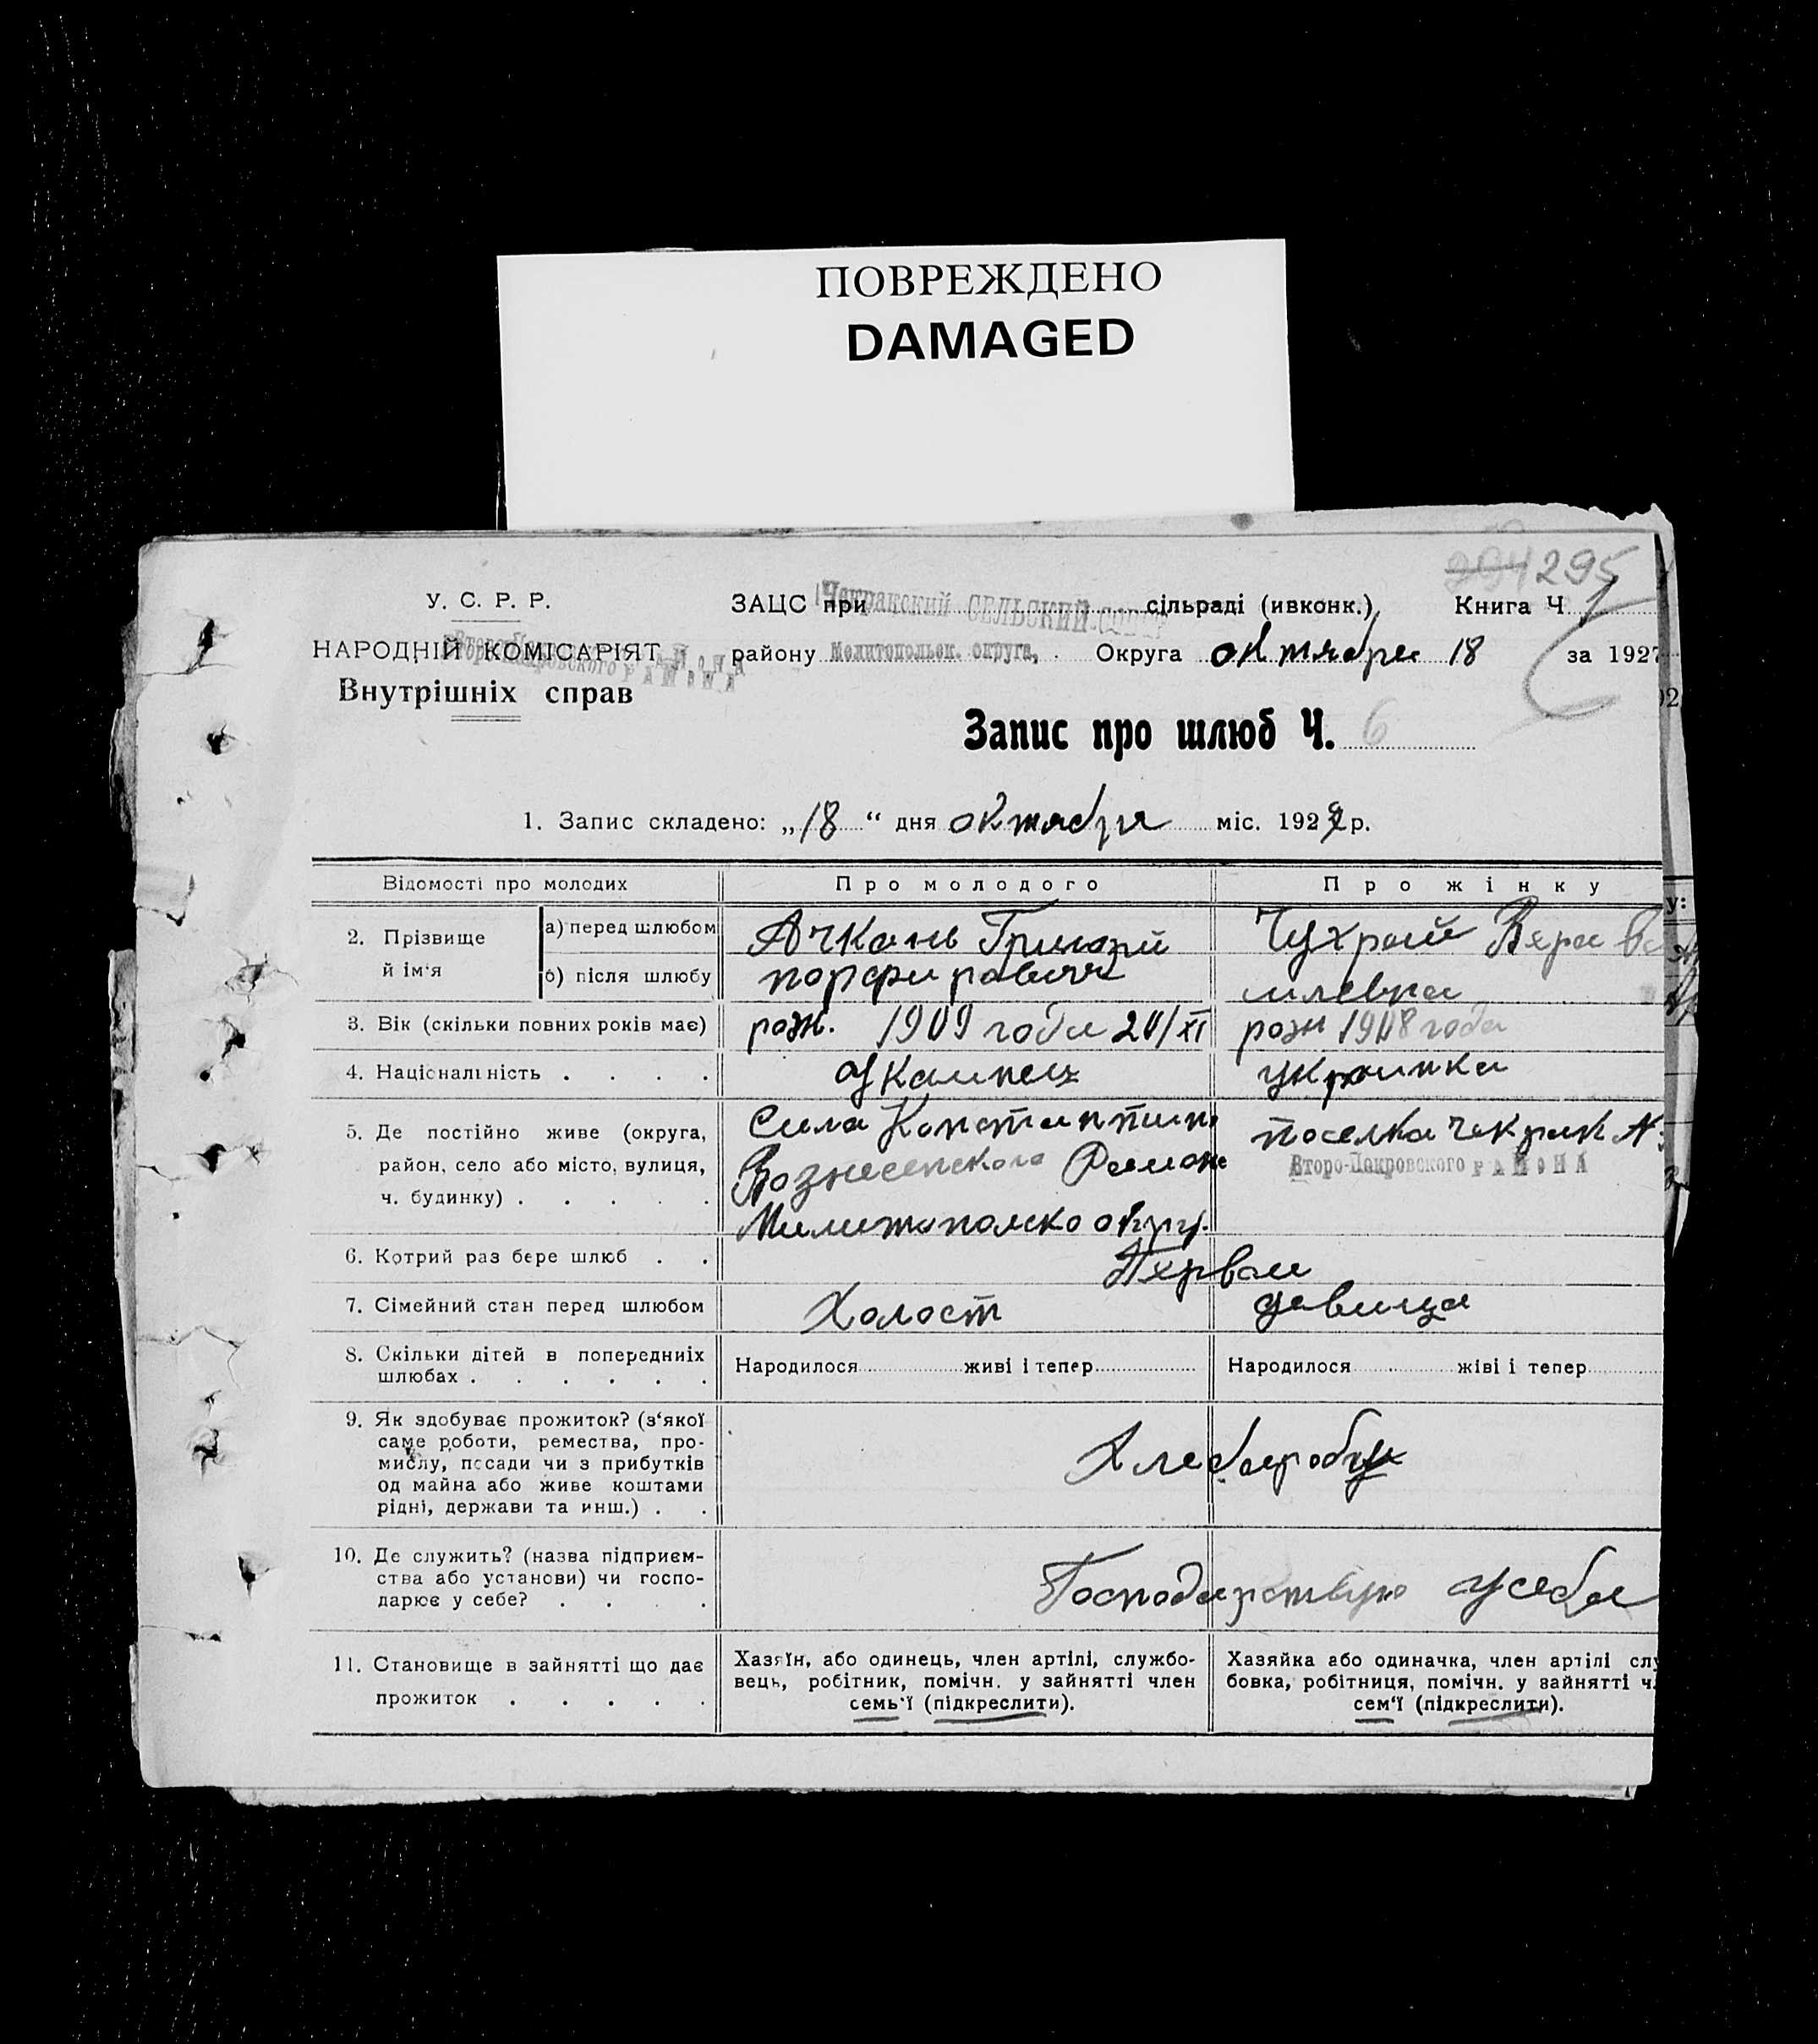 ПОВРЕЖДЕНО
DAMAGED
294 295
У. С. Р. Р.
ЗАЦС при Чекракский СЕЛЬСКИЙ СОВЕТ сільраді (ивконк.) Книга Ч. 1
НАРОДНІЙ КОМІСАРІЯТ
Второ-Покровского РАЙОНА
району Мелитопольск. округа, Округа октября 18 за 1927
Внутрішніх справ
Запис про шлюб Ч. 6
1. Запис складено: „18“ дня октября міс. 192 р.
Відомості про молодих
Про молодого
Про жінку
2. Прізвище й ім‘я
а) перед шлюбом
Ачкань Григорий
Чухрай Вера Ва
б) після шлюбу
порфировичь
илевна
3. Вік (скільки повних років має)
рож. 1909 года 20/XI
рож 1908 года
4. Національність . . . .
Украинец
украинка
5. Де постійно живе (округа,
район, село або місто, вулиця,
ч. будинку) . . . . .
Села Константин
Вознесенского Района
Милитополско округ.
поселка Чекрак N
Второ-Покровского РАЙОНА
6. Котрий раз бере шлюб . .
Первай
7. Сімейний стан перед шлюбом
Холост
девица
8. Скільки дітей в попередниіх
шлюбах . . . . . .
Народилося живі і тепер
Народилося жіві і тепер
9. Як здобуває прожиток? (з‘якої
саме роботи, ремества, про-
мислу, посади чи з прибутків
од майна або живе коштами
рідні, держави та инш.) . .
Хлебороб
10. Де служить? (назва підприєм-
ства або установи) чи госпо-
дарює у себе? . . . .
Господарствую усебе
11. Становище в зайнятті що дає
прожиток . . . . .
Хазяїн, або одинець, член артілі, службо-
вець, робітник, помічн. у зайнятті член
семь‘ї (підкреслити).
Хазяйка або одиначка, член артілі слу
бовка, робітниця, помічн. у зайнятті ч
сем‘ї (підкреслити).